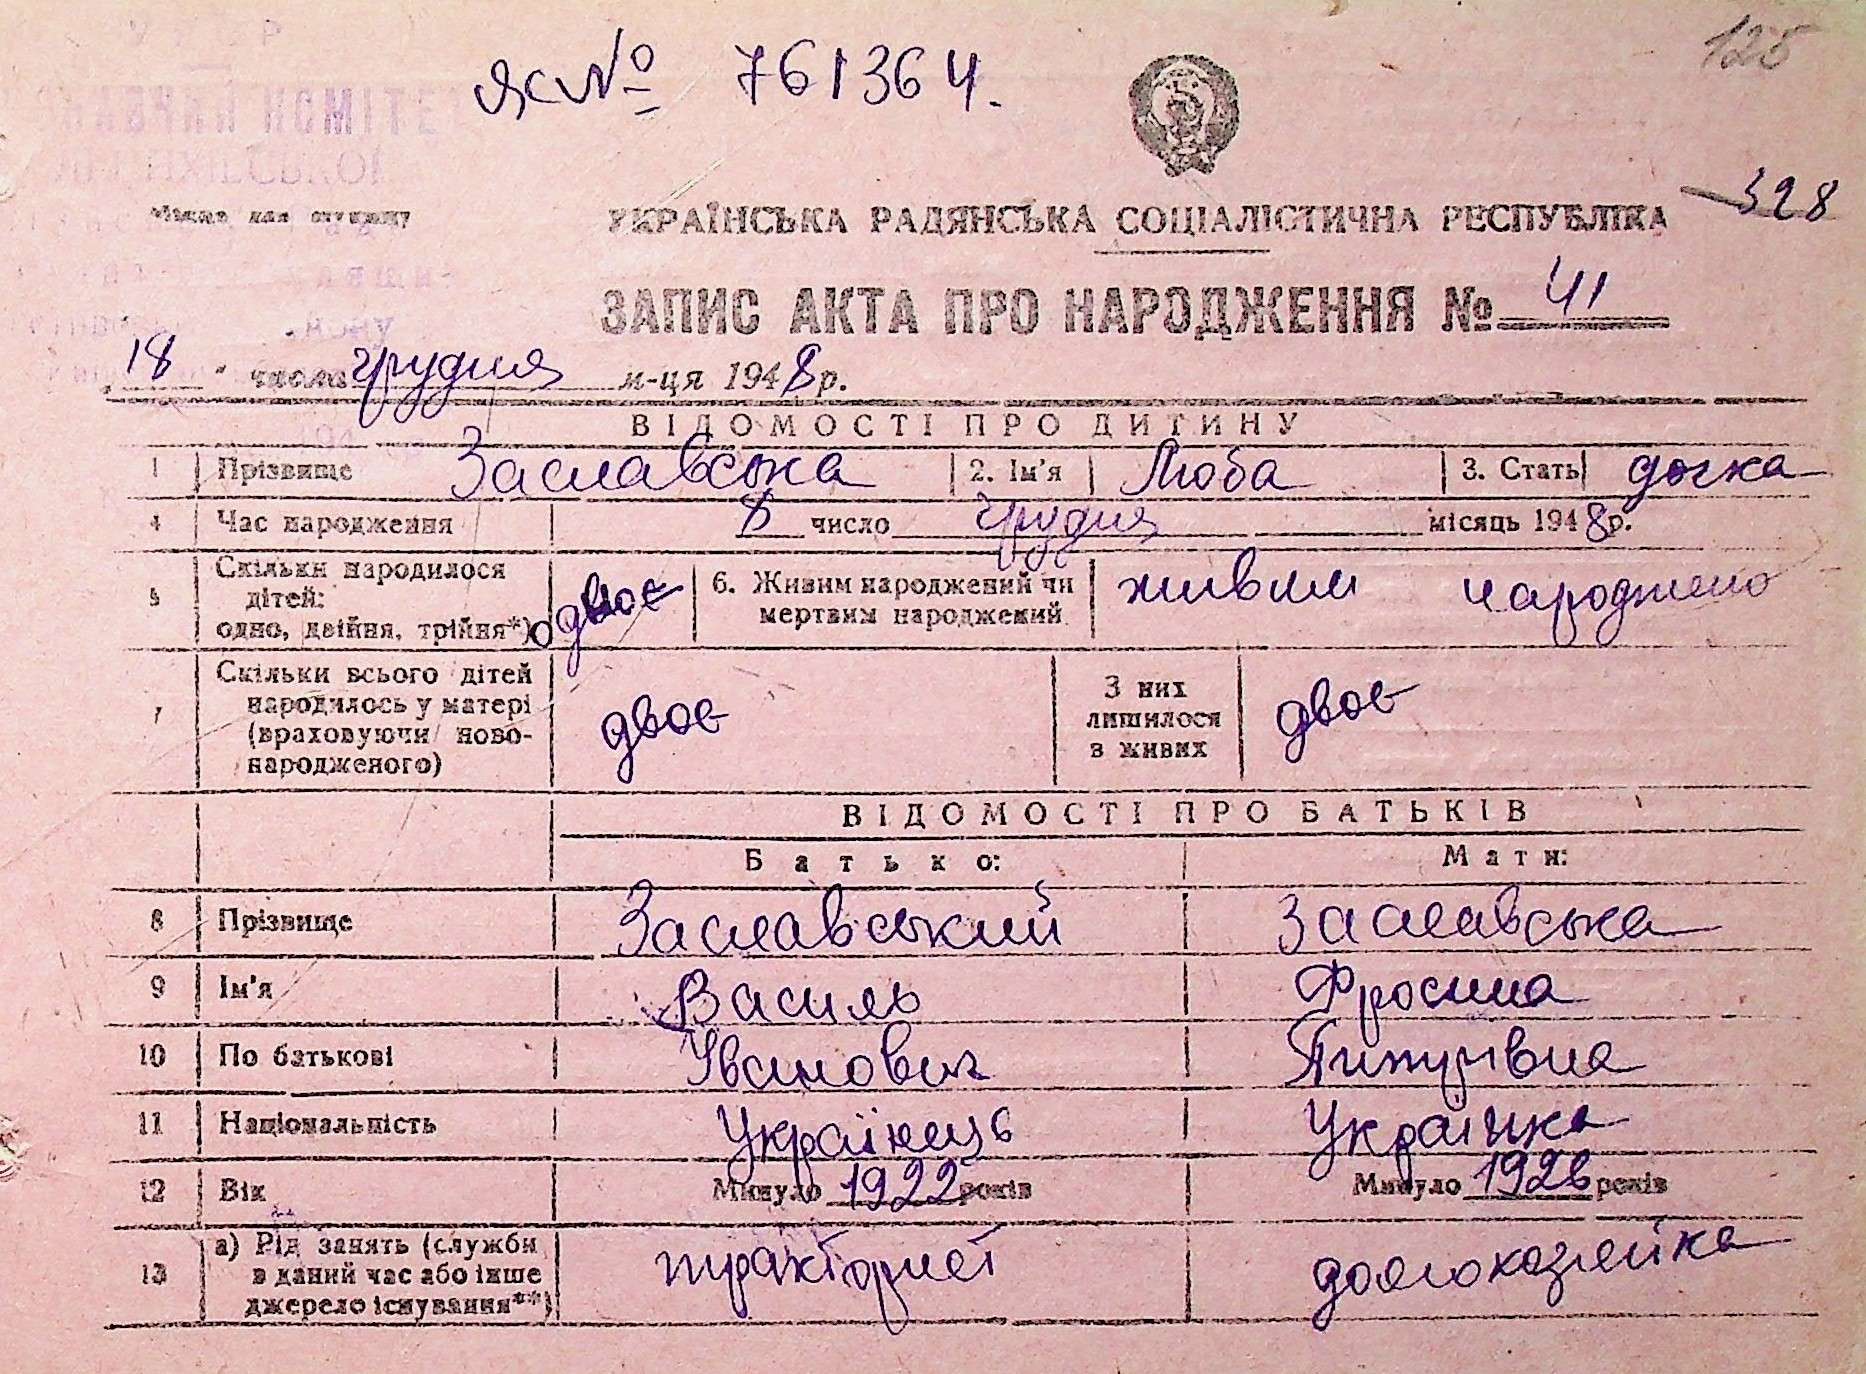 125
ЯС № 761364.
-328
Місце для штампу
УКРАЇНСЬКА РАДЯНСЬКА СОЦІАЛІСТИЧНА РЕСПУБЛІКА
ЗАПИС АКТА ПРО НАРОДЖЕННЯ № 41
18 " числа грудня м-ця 1948 р.
ВІДОМОСТІ ПРО ДИТИНУ
1 Прізвище Заславська 2. Ім'я Люба 3. Стать дочка
4 Час народження 8 число грудня місяць 1948 р.
5 Скільки народилося дітей: одно, двійня, трійня*) двоє 6. Живим народжений чи мертвим народжений живим народжено
7 Скільки всього дітей народилось у матері (враховуючи ново-народженого) двоє З них лишилося в живих двоє
ВІДОМОСТІ ПРО БАТЬКІВ
Батько: Мати:
8 Прізвище Заславський Заславська
9 Ім'я Василь Фросина
10 По батькові Іванович
11 Національність Українець Українка
12 Вік Минуло 1922 років Минуло 1926 років
13 а) Рід занять (служби в даний час або інше джерело існування**) тракторист домохазяйка